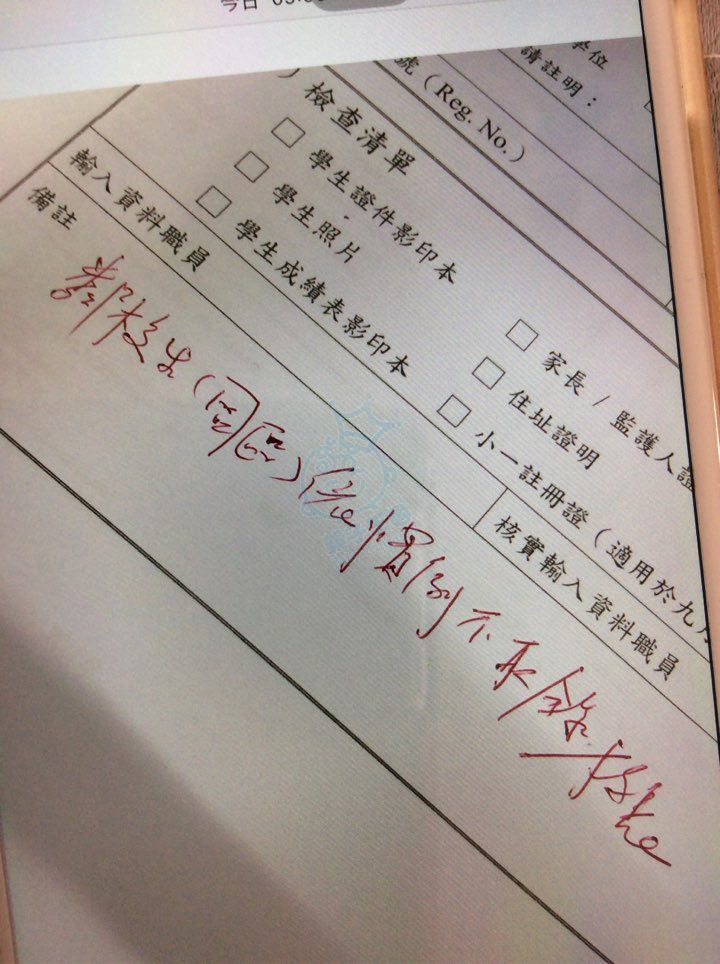 今日
學位
請註明：
號（Reg. No.）
）檢查清單
學生證件影印本
學生照片
學生成績表影印本
家長 / 監護人證
住址證明
小一註冊證（適用於九月
輸入資料職員
核實輸入資料職員
備註
鄰校生(同區)依慣例不取錄